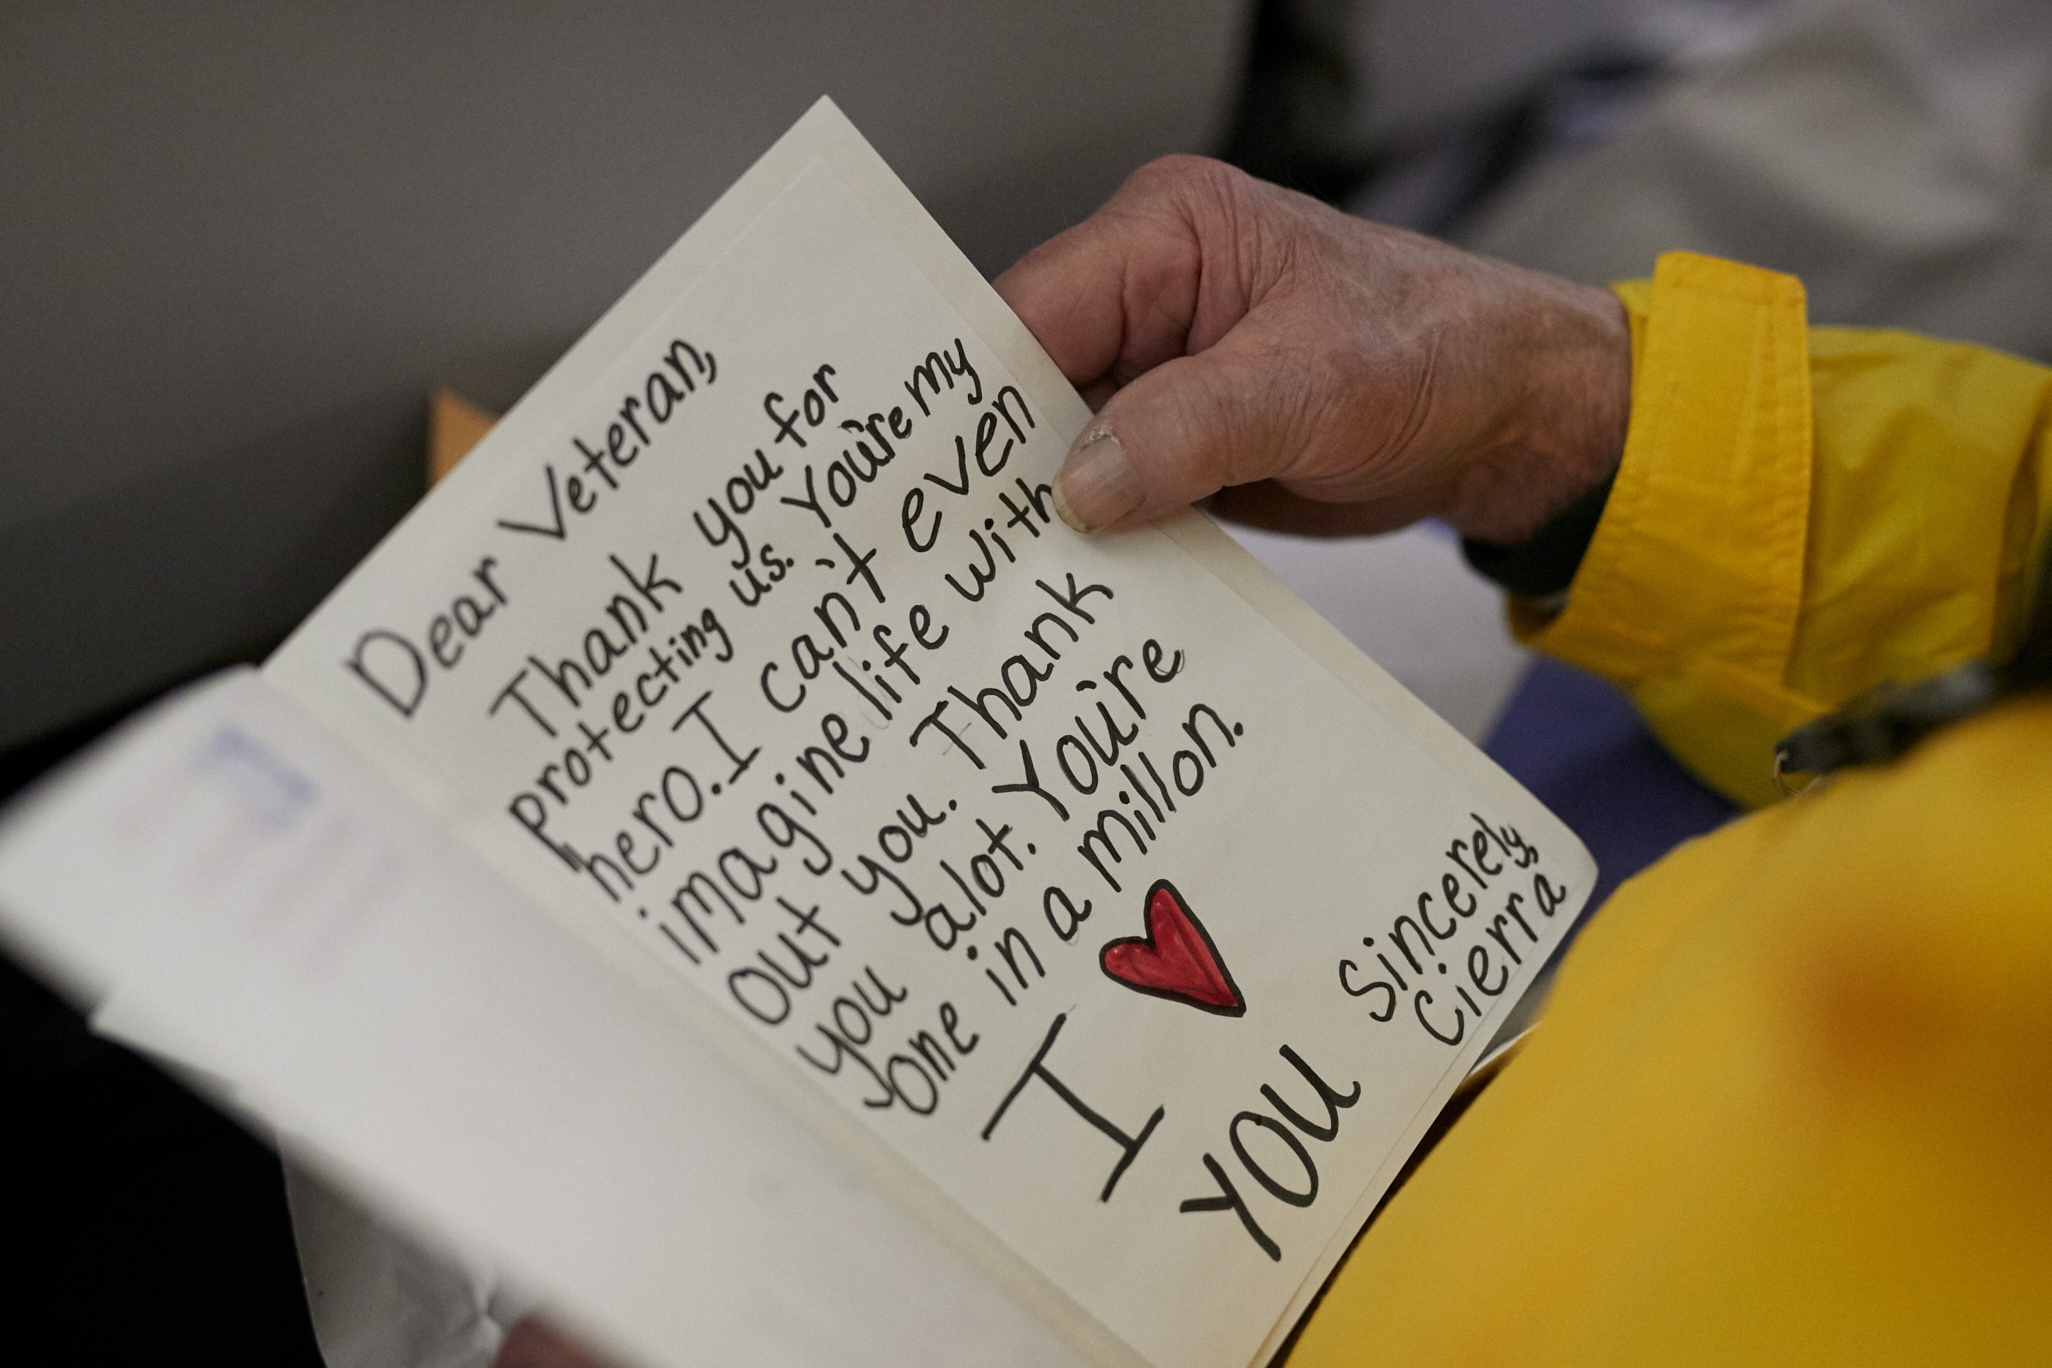 Dear Veteran,
Thank you for
protecting us. You're my
hero. I can't even
imagine life with
out you. Thank
you alot. You're
one in a millon.
I
YOU
Sincerely,
Cierra